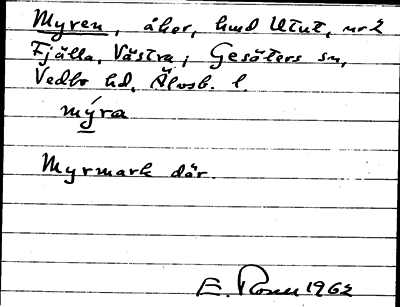 Myren, åker, hmd Utut, nr 2
Fjälla, Västra; Gesäters sn,
Vedbo hd, Älvsb. l.
mýra
Myrmark där.
E. 1962